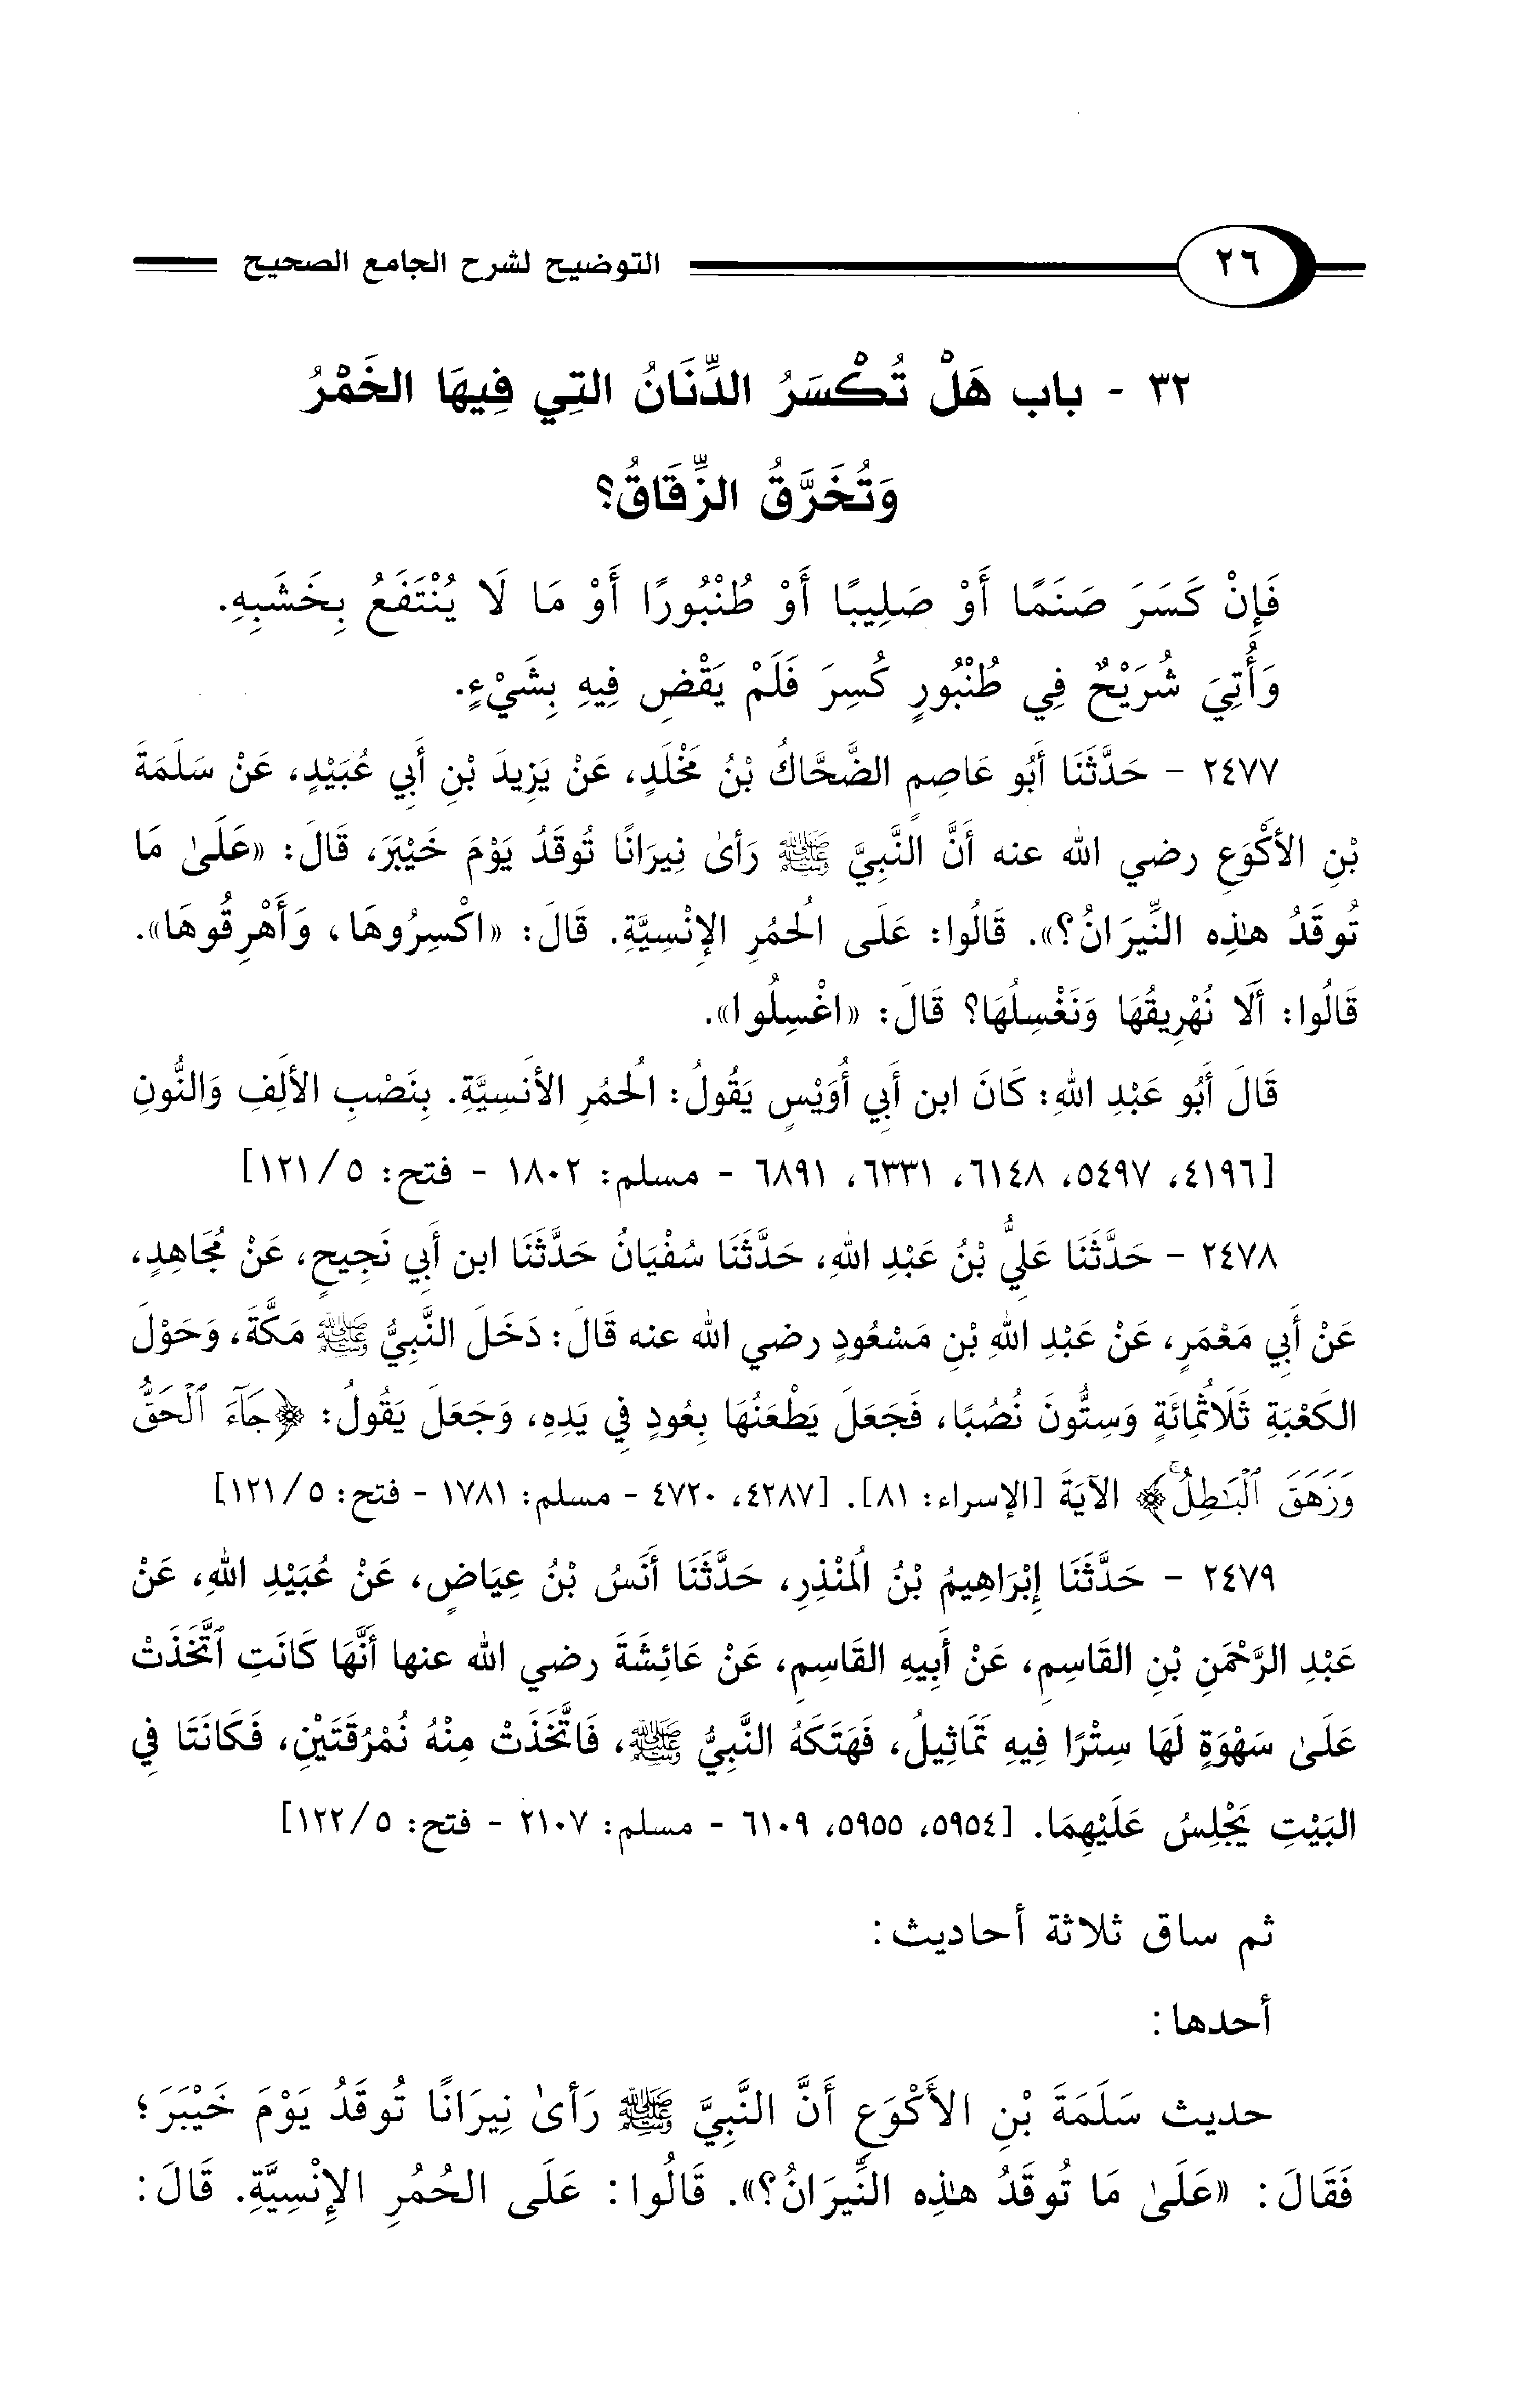 ٢٦ التوضيح لشرح الجامع الصحيح
٣٢ - باب هَلْ تُكْسَرُ الدِّنَانُ التِي فِيهَا الخَمْرُ
وَتُخَرَّقُ الزِّقَاقُ؟
فَإِنْ كَسَرَ صَنَمًا أَوْ صَلِيبًا أَوْ طُنْبُورًا أَوْ مَا لَا يُنْتَفَعُ بِخَشَبِهِ.
وَأُتِيَ شُرَيْحٌ فِي طُنْبُورٍ كُسِرَ فَلَمْ يَقْضِ فِيهِ بِشَيْءٍ.
٢٤٧٧ - حَدَّثَنَا أَبُو عَاصِمٍ الضَّحَّاكُ بْنُ مَخْلَدٍ، عَنْ يَزِيدَ بْنِ أَبِي عُبَيْدٍ، عَنْ سَلَمَةَ
بْنِ الأَكْوَعِ رضي الله عنه أَنَّ النَّبِيَّ ﷺ رَأىٰ نِيرَانًا تُوقَدُ يَوْمَ خَيْبَرَ، قَالَ: «عَلَىٰ مَا
تُوقَدُ هٰذِه النِّيرَانُ؟». قَالُوا: عَلَى الُحمُرِ الإِنْسِيَّةِ. قَالَ: «اكْسِرُوهَا، وَأَهْرِقُوهَا».
قَالُوا: أَلَا نُهْرِيقُهَا وَنَغْسِلُهَا؟ قَالَ: «اغْسِلُوا».
قَالَ أَبُو عَبْدِ اللهِ: كَانَ ابن أَبِي أُوَيْسٍ يَقُولُ: الُحمُرِ الأَنَسِيَّةِ. بِنَصْبِ الأَلِفِ وَالنُّونِ
[٤١٩٦، ٥٤٩٧، ٦١٤٨، ٦٣٣١، ٦٨٩١ - مسلم: ١٨٠٢ - فتح: ٥/ ١٢١]
٢٤٧٨ - حَدَّثَنَا عَلِيُّ بْنُ عَبْدِ اللهِ، حَدَّثَنَا سُفْيَانُ حَدَّثَنَا ابن أَبِي نَجِيحٍ، عَنْ مُجَاهِدٍ،
عَنْ أَبِي مَعْمَرٍ، عَنْ عَبْدِ اللهِ بْنِ مَسْعُودٍ رضي الله عنه قَالَ: دَخَلَ النَّبِيُّ ﷺ مَكَّةَ، وَحَوْلَ
الكَعْبَةِ ثَلَاثُمِائَةٍ وَسِتُّونَ نُصُبًا، فَجَعَلَ يَطْعَنُهَا بِعُودٍ فِي يَدِهِ، وَجَعَلَ يَقُولُ: ﴿جَآءَ ٱلْحَقُّ
وَزَهَقَ ٱلْبَٰطِلُ﴾ الآيَةَ [الإسراء: ٨١]. [٤٢٨٧، ٤٧٢٠ - مسلم: ١٧٨١ - فتح: ٥/ ١٢١]
٢٤٧٩ - حَدَّثَنَا إِبْرَاهِيمُ بْنُ الُمنْذِرِ، حَدَّثَنَا أَنَسُ بْنُ عِيَاضٍ، عَنْ عُبَيْدِ اللهِ، عَنْ
عَبْدِ الرَّحْمَنِ بْنِ القَاسِمِ، عَنْ أَبِيهِ القَاسِمِ، عَنْ عَائِشَةَ رضي الله عنها أَنَّهَا كَانَتِ ٱتَّخَذَتْ
عَلَىٰ سَهْوَةٍ لَهَا سِتْرًا فِيهِ تَمَاثِيلُ، فَهَتَكَهُ النَّبِيُّ ﷺ، فَاتَّخَذَتْ مِنْهُ نُمْرُقَتَيْنِ، فَكَانَتَا فِي
البَيْتِ يَجْلِسُ عَلَيْهِمَا. [٥٩٥٤، ٥٩٥٥، ٦١٠٩ - مسلم: ٢١٠٧ - فتح: ٥/ ١٢٢]
ثم ساق ثلاثة أحاديث:
أحدها:
حديث سَلَمَةَ بْنِ الأَكْوَعِ أَنَّ النَّبِيَّ ﷺ رَأىٰ نِيرَانًا تُوقَدُ يَوْمَ خَيْبَرَ؛
فَقَالَ: «عَلَىٰ مَا تُوقَدُ هٰذِه النِّيرَانُ؟». قَالُوا: عَلَى الحُمُرِ الإِنْسِيَّةِ. قَالَ: